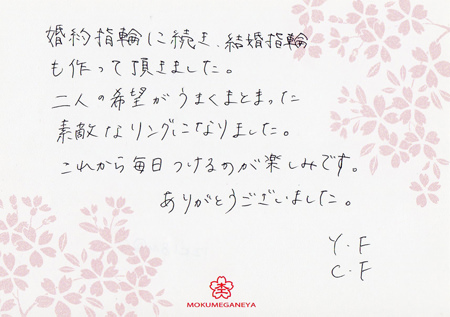 婚約指輪に続き、結婚指輪
も作って頂きました。
二人の希望がうまくまとまった
素敵なリングになりました。
これから毎日つけるのが楽しみです。
ありがとうございました。
Y.F
C.F
MOKUMEGANEYA